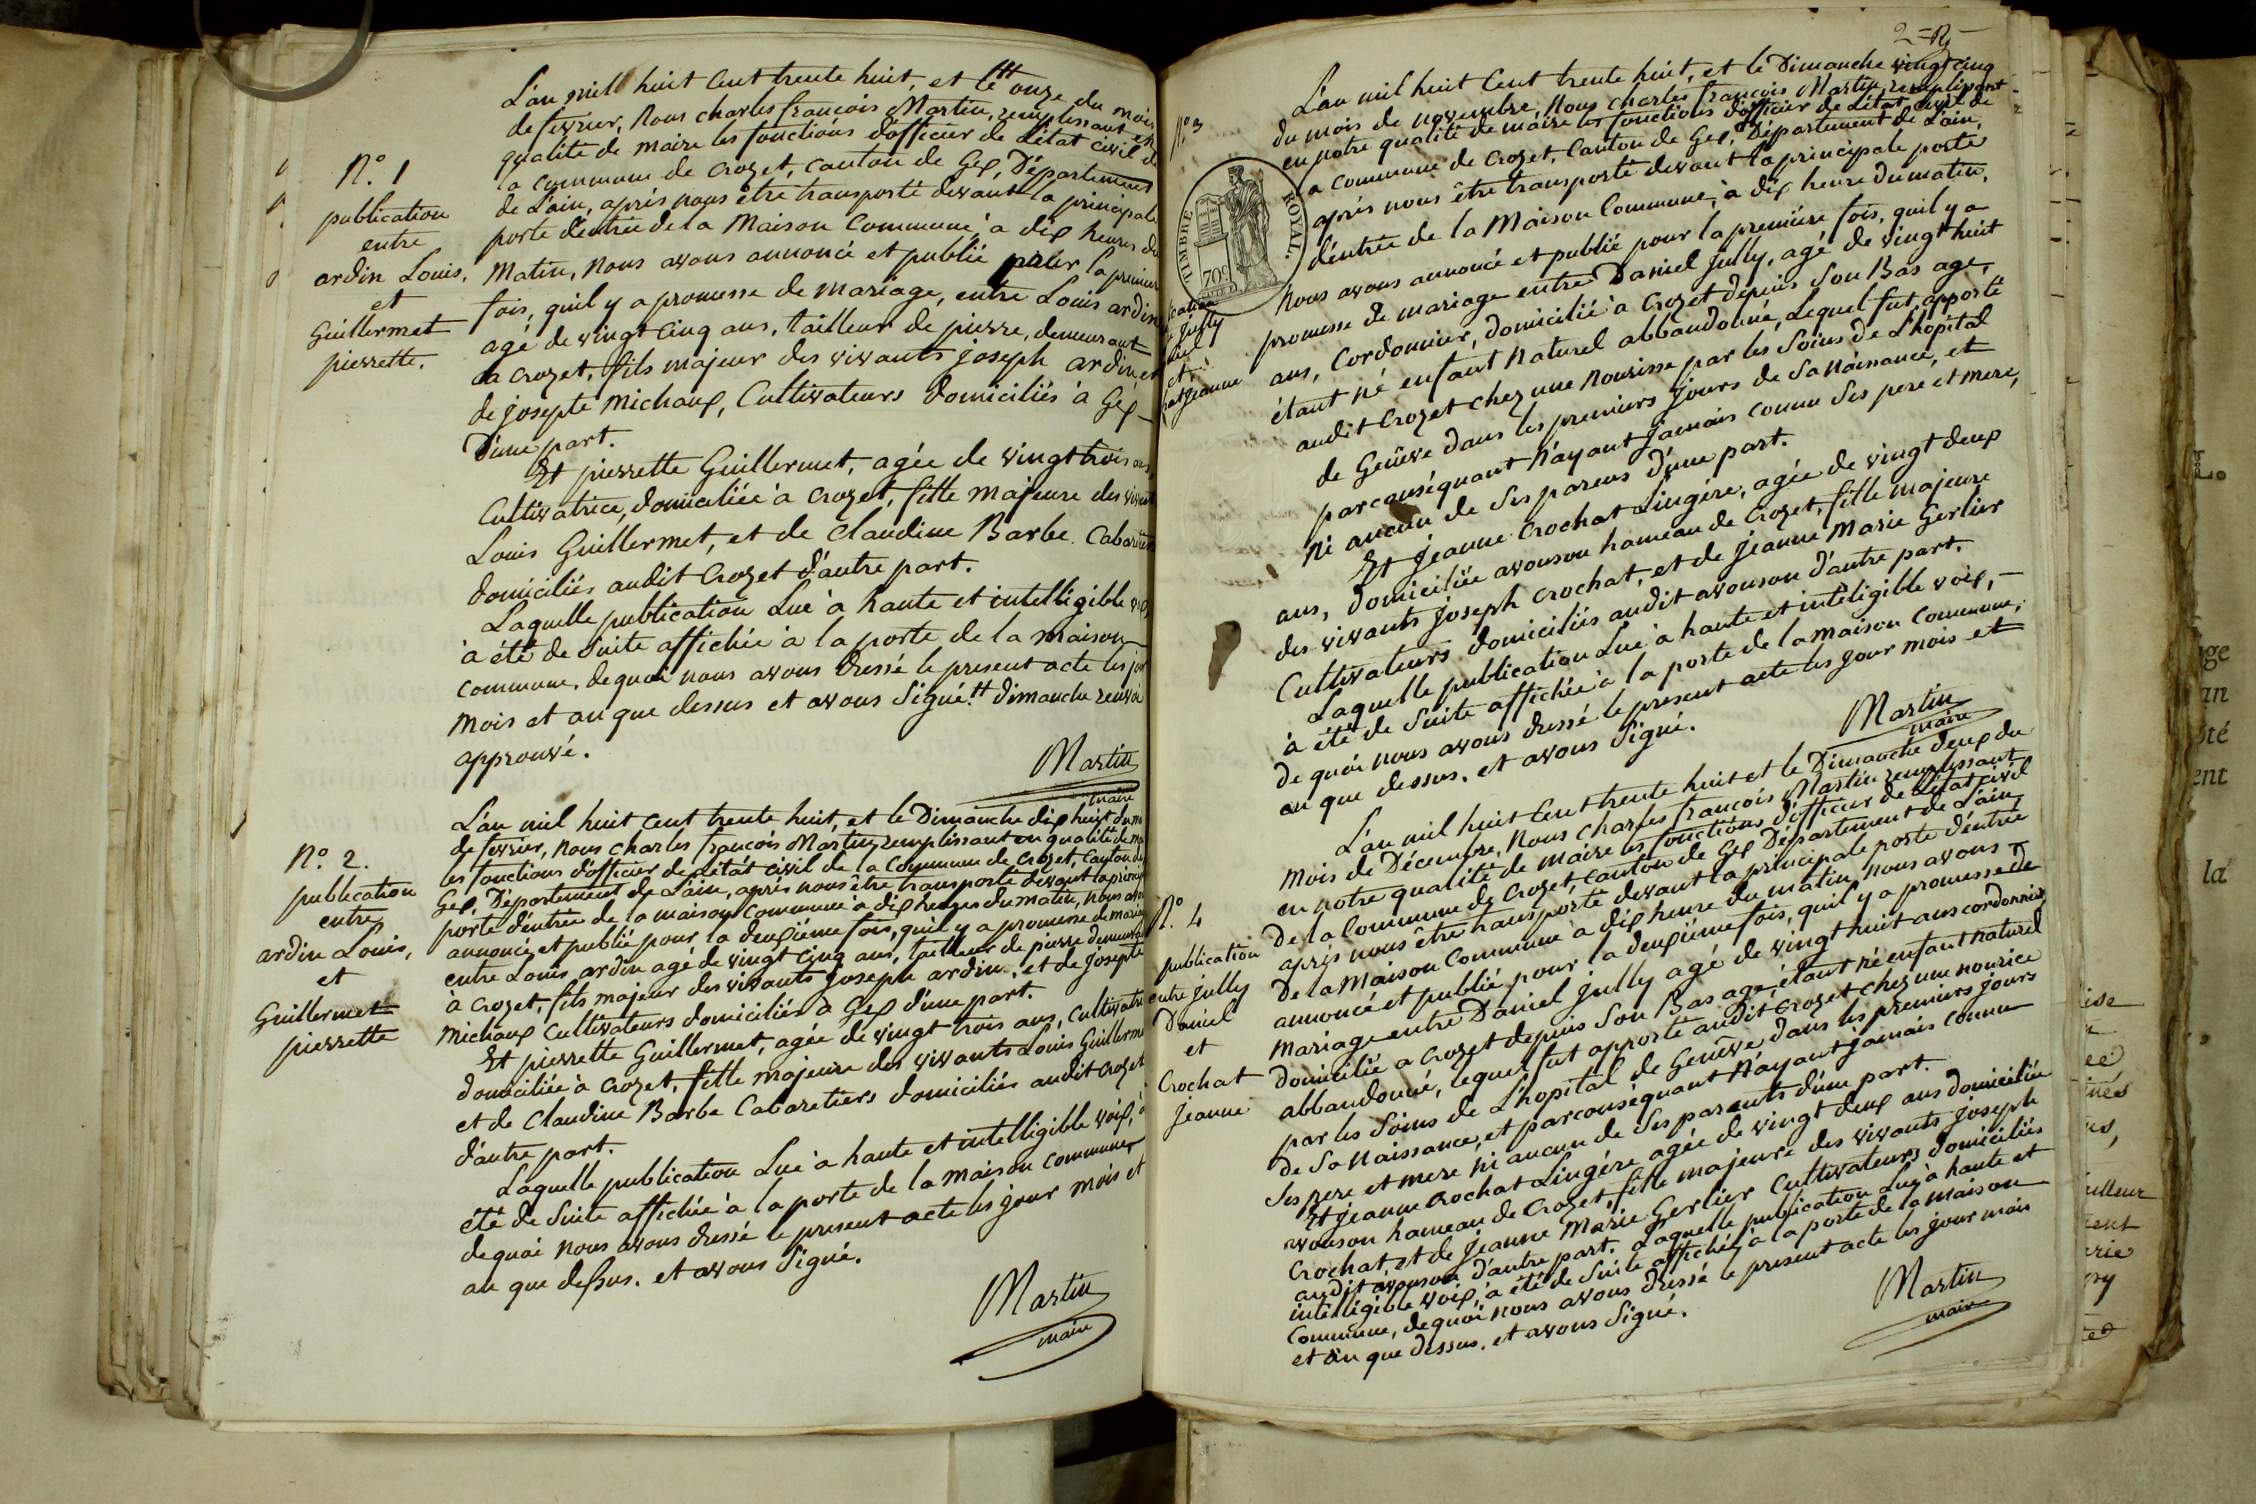 L'an mil huit cent trente huit, et le tt onze du mois
de fevrier, Nous charles françois Martin, remplissant en
qualité de maire les fonctions d'officier de l'état civil de
la commune de crozet, canton de Gex, Département
de L'ain, après nous être transporté devant la principale
porte d'entrée de la Maison Commune, à dix heures du
Matin, Nous avons annoncé et publié pour la premiere
fois, qu'il y a promesse de mariage, entre Louis ardin
agé de vingt cinq ans, tailleur de pierre, demeurant
a crozet, fils majeur des vivants joseph ardin, et
de josepte Michaux, Cultivateurs domiciliés à Gex
D'une part.
Et pierrette Guillermet, agée de vingt trois ans,
Cultivatrice, domiciliée à crozet, fille majeure des vivants
Louis Guillermet, et de Claudine Barbe. Cabaretiers
domiciliés audit Crozet d'autre part.
Laquelle publication Lue à haute et intelligible voix,
à été de suite affichée à la porte de la maison
commune. de quoi nous avons dressé le present acte les jour
mois et an que dessus et avons Signé. tt dimanche renvoi
approuvé.
Martin
maire
N.° 1
publication
entre
ardin Louis,
et
Guillermet
pierrette.
L'an mil huit cent trente huit, et le Dimanche dix huit du mois
de fevrier, nous charles françois Martin, remplissant en qualité de maire
les fonctions d'officier de l'état civil de la Commune de Crozet, Canton de
Gex, Département de L'ain, après nous être transporté devant la principale
porte d'entrée de la maison Commune à dix heures du matin, nous avons
annoncé et publié pour la deuxième fois, qu'il y a promesse de mariage
entre Louis ardin agé de vingt cinq ans, tailleur de pierre demeurant
à crozet, fils majeur des vivants joseph ardin, et de josepte
Michaux Cultivateurs domiciliés à Gex d'une part.
Et pierrette Guillermet, agée de vingt trois ans, cultivatrice
domiciliée à crozet, fille majeure des vivants Louis Guillermet
et de Claudine Barbe Cabaretiers domiciliés audit crozet
d'autre part.
Laquelle publication Lue à haute et intelligible voix, à
été de suite affichée à la porte de la maison commune
de quoi nous avons dressé le present acte les jour mois et
an que dessus. et avons Signé.
Martin
maire
N.° 2.
publication
entre
ardin Louis,
et
Guillermet
pierrette
L'an mil huit Cent trente huit, et le Dimanche vingt cinq
du mois de novembre, Nous charles françois Martin, remplissant
en notre qualité de maire les fonctions d'officier de L'état civil de
la commune de crozet, Canton de Gex, Département de L'ain,
après nous être transporté devant la principale porte
d'entrée de la Maison Commune, à dix heure du matin,
Nous avons annoncé et publié pour la première fois, qu'il y a
promesse de mariage entre Daniel Jully, agé de vingt huit
ans, Cordonnier, domicilié à Crozet depuis son Bas age,
étant né enfant Naturel abbandonné, Lequel fut apporté
audit Crozet chez une Nourisse par les Soins de L'hopital
de Genêve dans les premiers jours de Sa Naissance, et
par conséquant N'ayant jamais connu Ses pere et mere,
Ni aucun de Ses parens d'une part.
Et jeanne Crochat Lingére, agée de vingt deux
ans, domiciliée avouson hameau de Crozet, fille majeure
des vivants joseph crochat, et de jeanne Marie Gerlier
Cultivateurs domiciliés audit avouson d'autre part.
Laquelle publication Lue à haute et inteligible voix,
à été de suite affichée à la porte de la maison commune,
de quoi nous avons dressé le present acte les jour mois et
an que dessus. et avons Signé.
Martin
maire
2
N.° 3
TIMBRE ROYAL.
70c
Jully
et
jeanne
L'an mil huit Cent trente huit et le Dimanche deux du
mois de Décembre, Nous Charles françois Martin remplissant
en notre qualité de maire les fonctions d'officier de L'état civil
de la Commune de Crozet, canton de Gex Département de L'ain,
après nous être transporté devant la principale porte d'entrée
de la Maison Commune à dix heure du matin, nous avons
annoncé et publié pour la deuxième fois, qu'il y a promesse de
Mariage entre Daniel Jully agé de vingt huit ans cordonnier,
domicilié a Crozet depuis Son Bas age, étant né enfant naturel
abbandonné, lequel fut apporté audit Crozet chez une nourice
par les Soins de L'hopital de Genêve dans les premiers jours
de Sa Naissance, et par conséquant N'ayant jamais connu
Ses pere et mere ni aucun de Ses parents d'une part.
Et jeanne Crochat Lingére agée de vingt deux ans domiciliée
avouson hameau de Crozet, fille majeure des vivants joseph
Crochat, et de jeanne Marie Gerlier Cultivateurs domiciliés
audit avouson d'autre part. Laquelle publication Lue à haute et
intelligible voix, à été de Suite affichée, à la porte de la maison
Commune, de quoi nous avons dressé le present acte les jour mois
et an que dessus. et avons Signé.
Martin
maire
N.° 4
publication
entre jully
Daniel
et
Crochat
jeanne